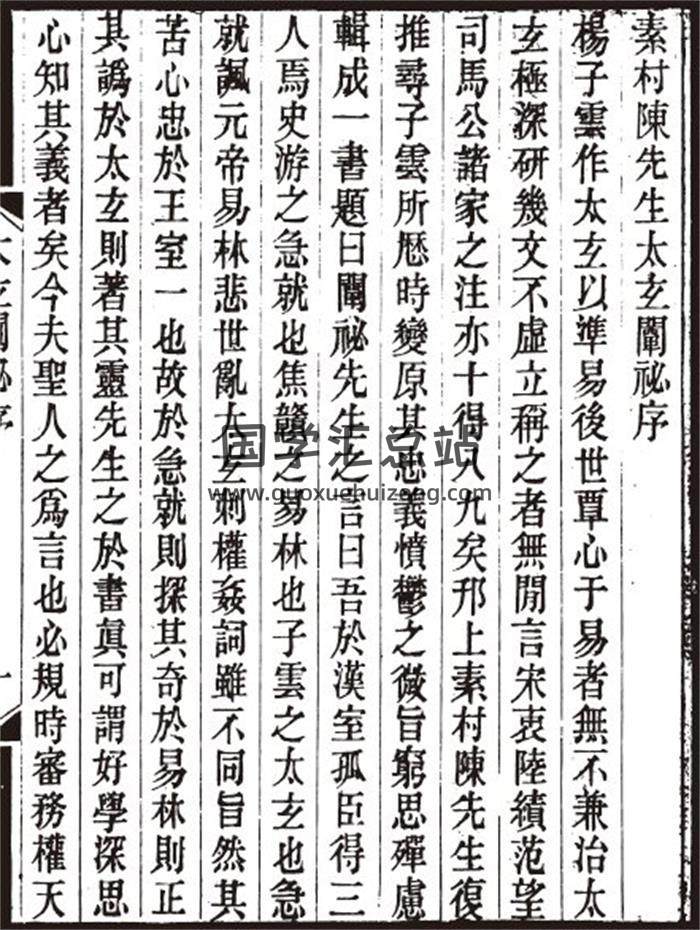 素村陳先生太玄闡祕序
楊子雲作太玄以準易後世覃心于易者無不兼治太
玄極深研幾文不虛立稱之者無閒言宋衷陸績范望
司馬公諸家之注亦十得八九矣邗上素村陳先生復
推尋子雲所厯時變原其忠義憤鬱之微旨窮思殫慮
輯成一書題曰闡祕先生之言曰吾於漢室孤臣得三
人焉史游之急就也焦贛之易林也子雲之太玄也急
就諷元帝易林悲世亂太玄刺權姦詞雖不同旨然其
苦心忠於王室一也故於急就則探其奇於易林則正
其譌於太玄則著其靈先生之於書眞可謂好學深思
心知其義者矣今夫聖人之爲言也必規時審務權天
太玄闡祕序
一
国学汇总站
www.guoxuehuizong.com